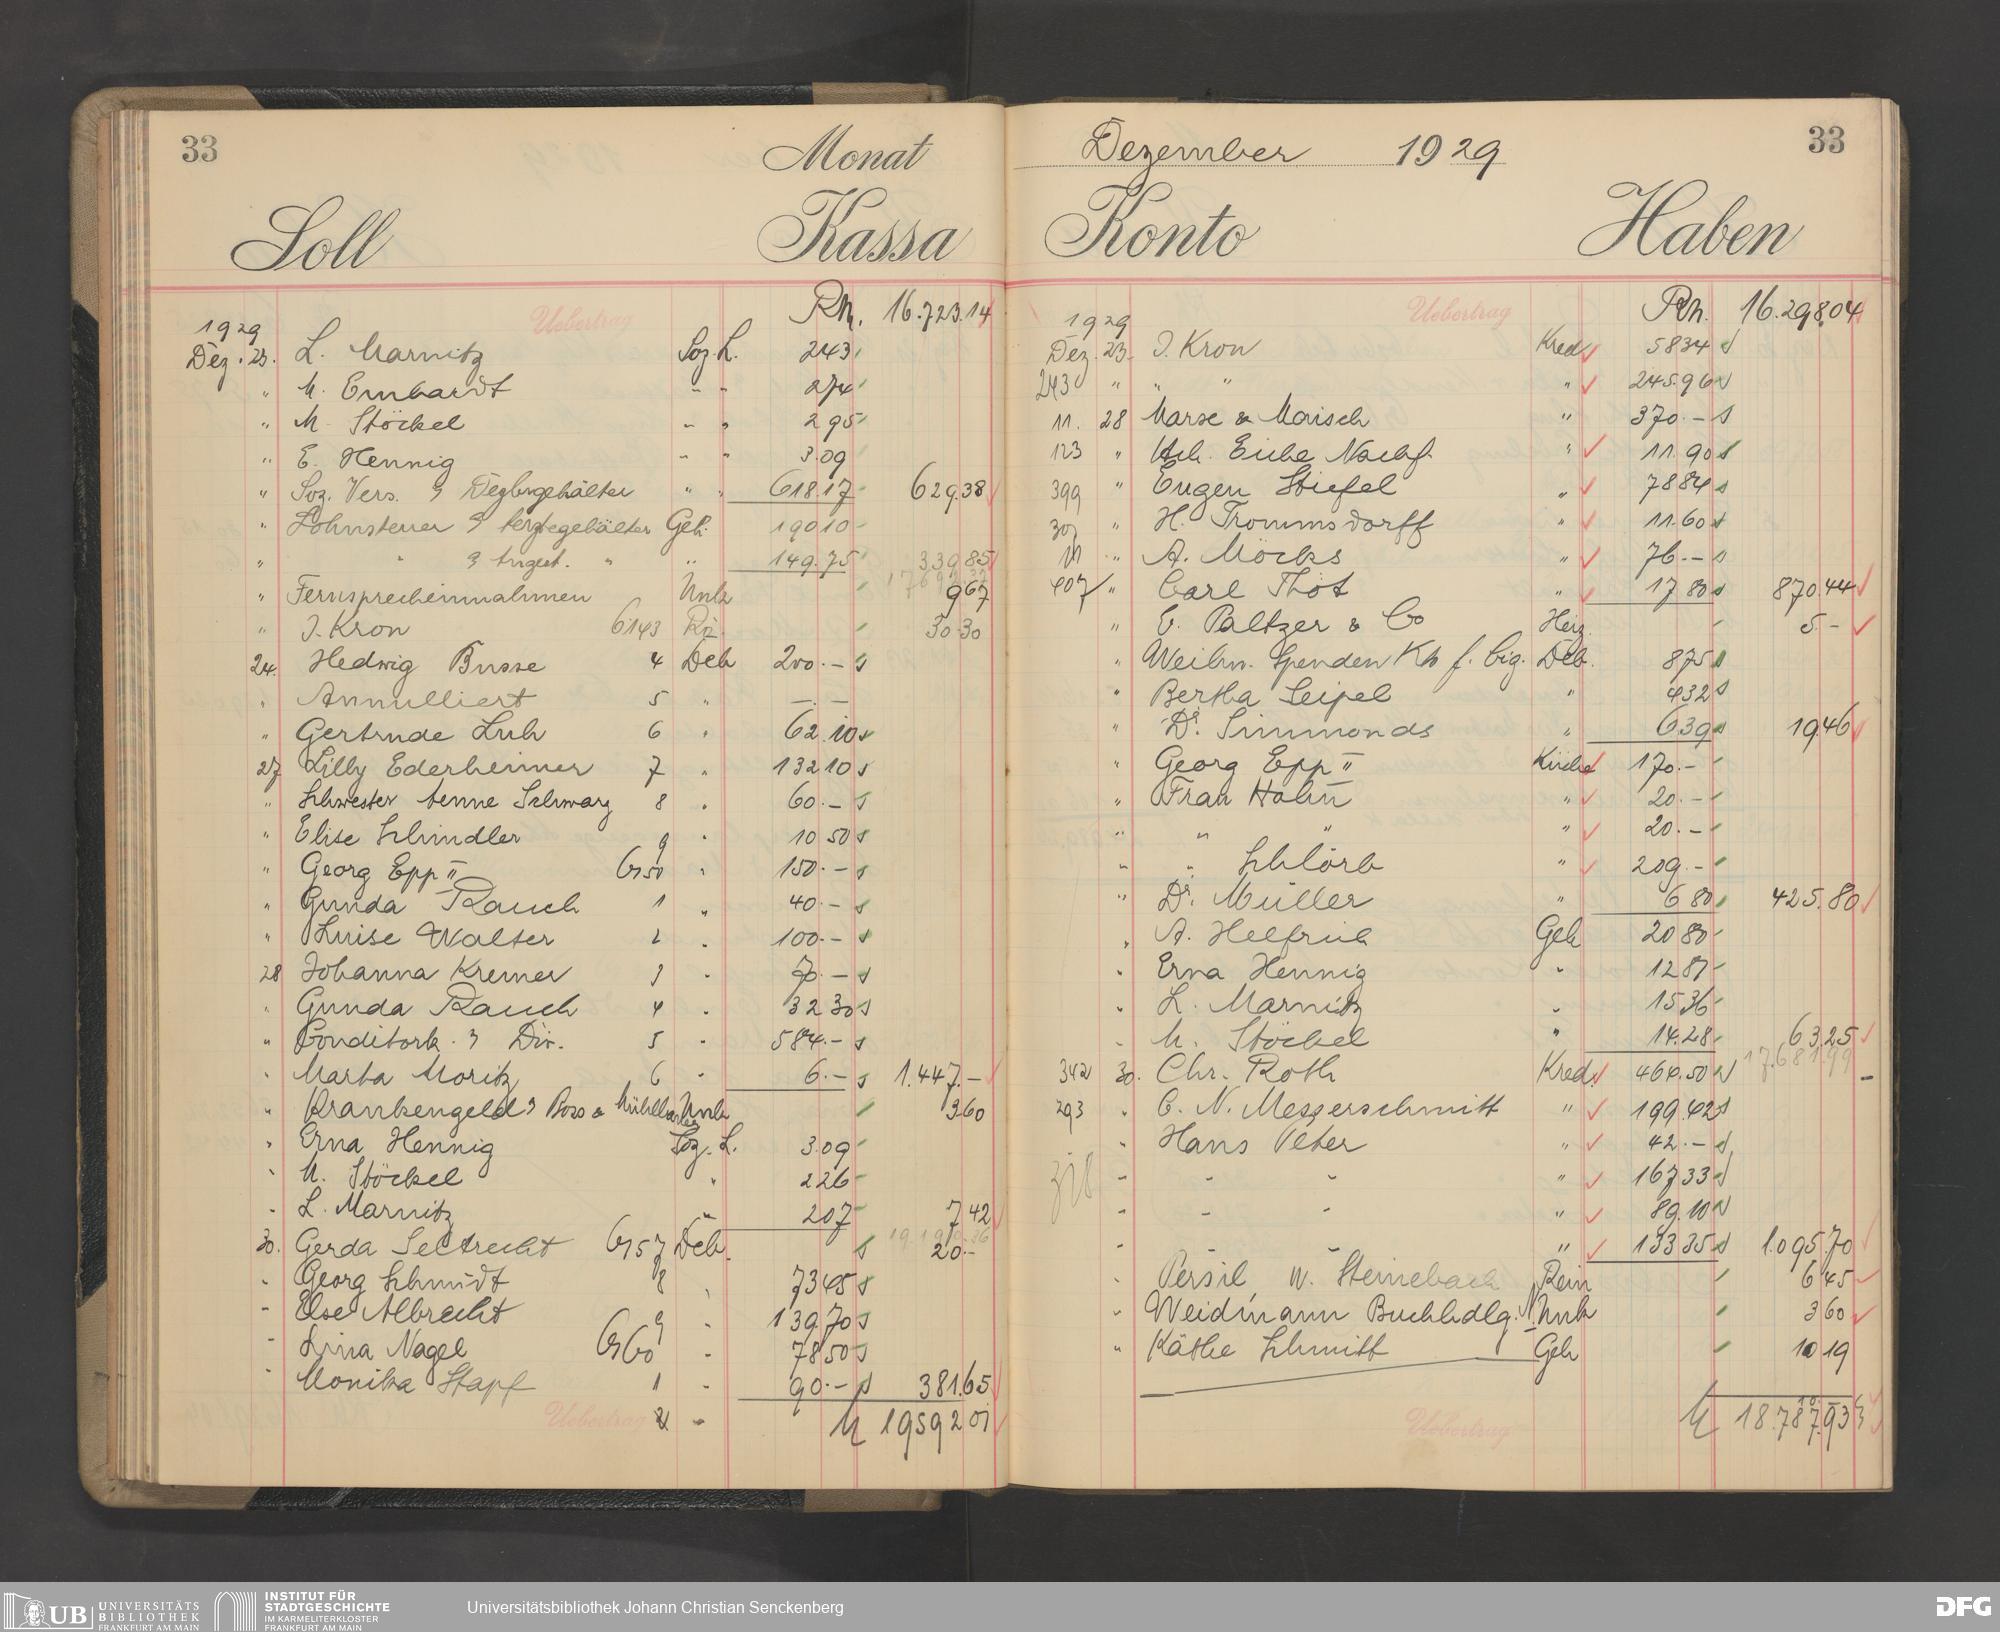 33
Monat
Soll
Kassa
Uebertrag Rm. 16.723.14
1929
Dez. 23. L. Marnitz Soz. L. 243
" M. Emhardt " " 274
" M. Stöckel " " 295
" E. Hennig " " 3.09
" Soz. Vers. Dezbrgehälter " " 618.17 629.38
" Lohnsteuer Geh. 190 10
" " Angest. " " 149.75 339.85
" Fernsprecheinnahmen Unk 967
" J. Kron 6143 30.30
24. Hedwig Busse 4 Deb 200.-
" Annulliert 5 " —.—
" Gertrude Luh 6 " 62.10
27 Lilly Ederheimer 7 " 132 10
" Schwester Schwarz 8 " 60.-
" Elise Schindler 9 " 10 50
" Georg Epp II 6150 " 150.-
" Gunda Rauch 1 " 40.-
" Luise Walter 2 " 100.-
28 Johanna Kremer 3 " 70.-
" Gunda Rauch 4 " 32 30
" Conditork. Div. 5 " 584.-
" Martha Moritz 6 " 6.- 1.447.-
" Krankengeld Unk 360
" Erna Hennig Soz. L. 3.09
" M. Stöckel " 226
" L. Marnitz " 207 742
30. Gerda Seltrecht 6157 Deb. 20.-
" Georg Schmidt 8 " 7345
" Else Albrecht 9 " 139.70
" Lina Nagel 6160 " 78 50
" Monika Stapf 1 " 90.- 381.65
Uebertrag 2 " M 19592 01
33
Dezember 1929
Konto
Haben
Uebertrag Rm. 16.298.04
1929
Dez. 23. J. Kron Kred 5834
243 " " " " 245.96
11. 28 Marx & Maisch " 370.-
123 " Hch. Eiche Nachf. " 11.90
399 " Eugen Stiefel " 7884
" H. Trommsdorff " 11.60
" A. Möcks " 76.-
407 " Carl Thöt " 17 80 870.44
" E. Paltzer & Co Heiz. 5.-
" Weihn. Spenden Deb. 875
" Bertha Seipel " 432
" Dr. Simmonds " 639 1946
" Georg Epp II Küche 170.-
" Frau Hahn " 20.-
" " " " 20.-
" " Schlörb " 209.-
" Dr. Müller " 6 80 425.80
" A. Helfrich Geh 20 80
" Erna Hennig " 12 81
" L. Marnitz " 15 36
" M. Stöckel " 14.28 63.25
17.681.99
342 30. Chr. Roth Kred. 464.50
293 " C. N. Messerschmitt " 199.42
" Hans Peter " 42.-
" " " " 167 33
" " " " 89.10
" " " " 133 35 1.095.70
" Persil W. Steinebach Rein 6 45
" Weidmann Buchhdlg. N. Unk 3 60
" Käthe Schmitt Geh 10 19
Uebertrag M 18.787.93
UB
UNIVERSITÄTS
BIBLIOTHEK
FRANKFURT AM MAIN
INSTITUT FÜR
STADTGESCHICHTE
IM KARMELITERKLOSTER
FRANKFURT AM MAIN
Universitätsbibliothek Johann Christian Senckenberg
DFG